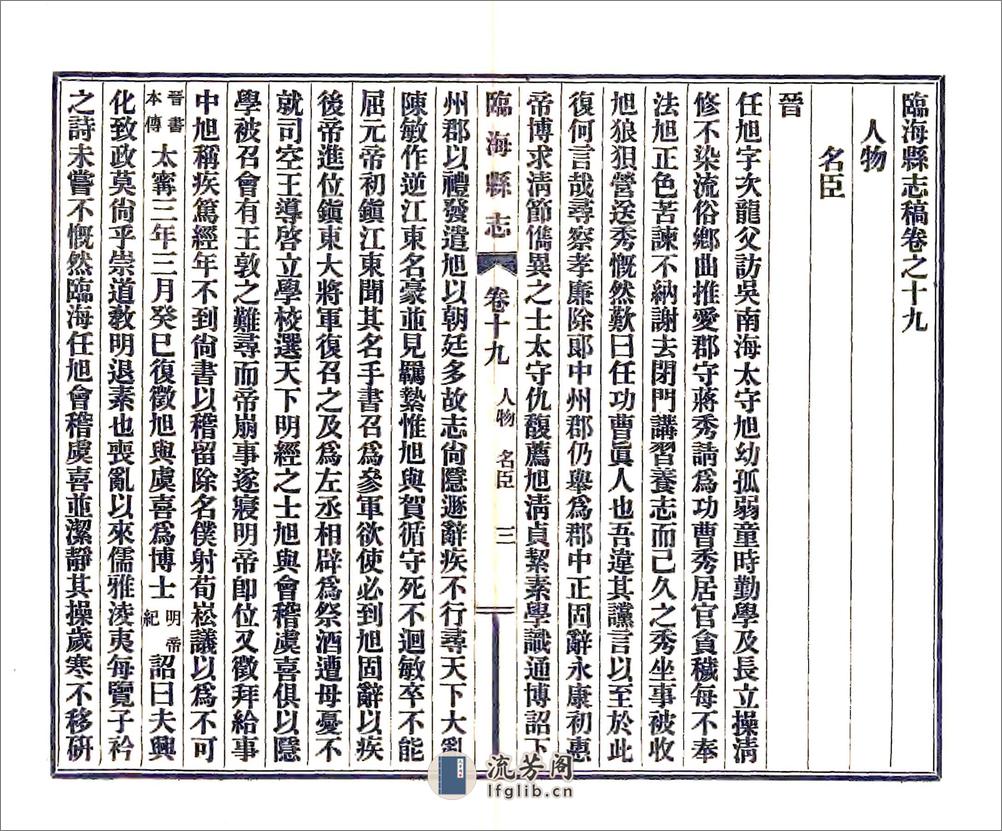 臨海縣志稿卷之十九
人物
名臣
晉
任旭字次龍父訪吳南海太守旭幼孤弱童時勤學及長立操淸
修不染流俗鄉曲推愛郡守蔣秀請爲功曹秀居官貪穢每不奉
法旭正色苦諫不納謝去閉門講習養志而已久之秀坐事被收
旭狼狽營送秀慨然歎曰任功曹眞人也吾違其讜言以至於此
復何言哉尋察孝廉除郎中州郡仍舉爲郡中正固辭永康初惠
帝博求淸節儁異之士太守仇馥薦旭淸貞絜素學識通博詔下
臨海縣志 卷十九 人物 名臣 三
州郡以禮發遣旭以朝廷多故志尙隱遯辭疾不行尋天下大亂
陳敏作逆江東名豪並見羈縶惟旭與賀循守死不迴敏卒不能
屈元帝初鎭江東聞其名手書召爲參軍欲使必到旭固辭以疾
後帝進位鎭東大將軍復召之及爲左丞相辟爲祭酒遭母憂不
就司空王導啓立學校選天下明經之士旭與會稽虞喜俱以隱
學被召會有王敦之難尋而帝崩事遂寢明帝卽位又徵拜給事
中旭稱疾篤經年不到尙書以稽留除名僕射荀崧議以爲不可
晉書本傳 太寧三年三月癸巳復徵旭與虞喜爲博士 明帝紀 詔曰夫興
化致政莫尙乎崇道敎明退素也喪亂以來儒雅淩夷每覽子衿
之詩未嘗不慨然臨海任旭會稽虞喜並潔靜其操歲寒不移硏
流芳阁
lfglib.cn